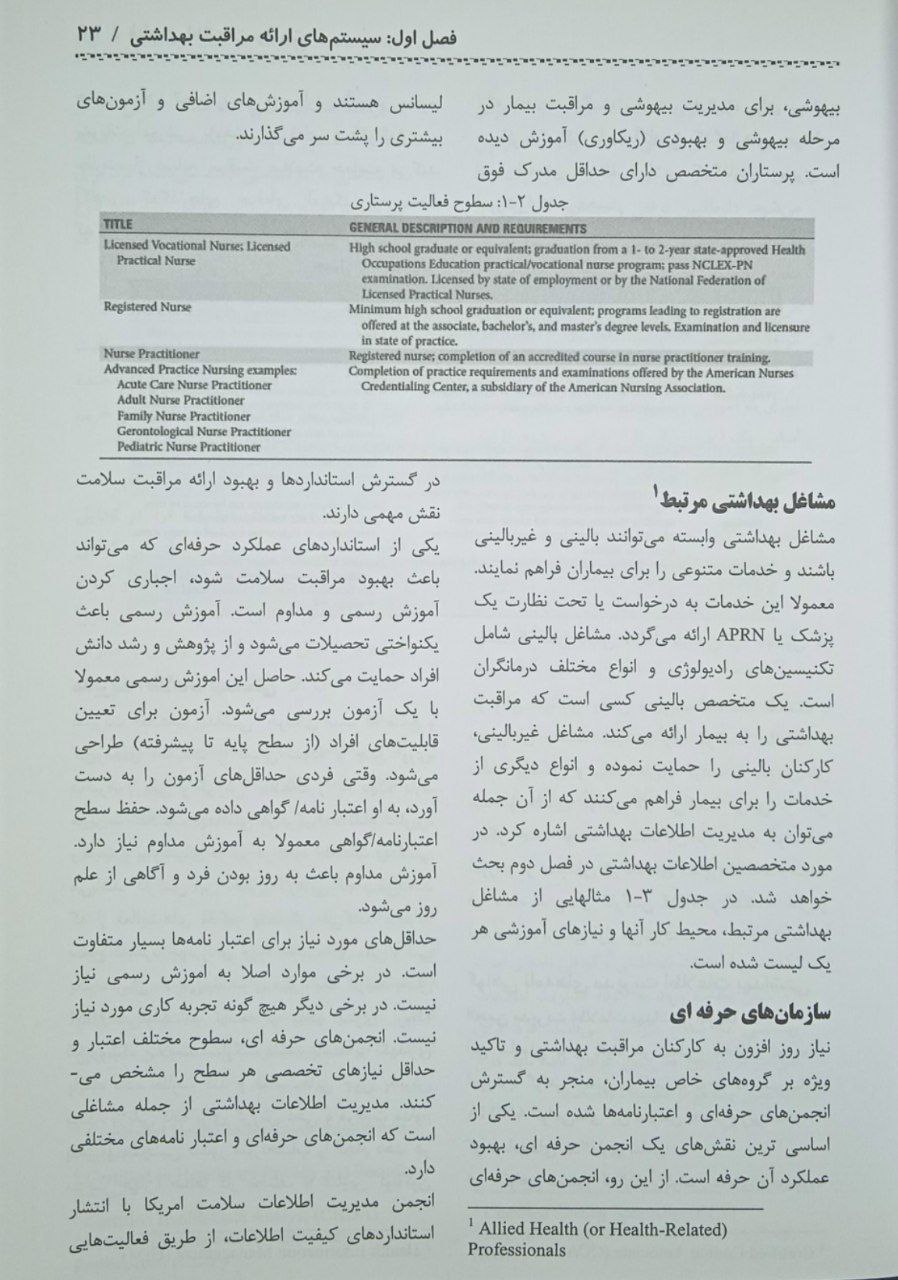 فصل اول: سیستم‌های ارائه مراقبت بهداشتی / ۲۳
بیهوشی، برای مدیریت بیهوشی و مراقبت بیمار در
مرحله بیهوشی و بهبودی (ریکاوری) آموزش دیده
است. پرستاران متخصص دارای حداقل مدرک فوق
لیسانس هستند و آموزش‌های اضافی و آزمون‌های
بیشتری را پشت سر می‌گذارند.
جدول ۲-۱: سطوح فعالیت پرستاری
TITLE GENERAL DESCRIPTION AND REQUIREMENTS
Licensed Vocational Nurse; Licensed
Practical Nurse
High school graduate or equivalent; graduation from a 1- to 2-year state-approved Health
Occupations Education practical/vocational nurse program; pass NCLEX-PN
examination. Licensed by state of employment or by the National Federation of
Licensed Practical Nurses.
Registered Nurse
Minimum high school graduation or equivalent; programs leading to registration are
offered at the associate, bachelor's, and master's degree levels. Examination and licensure
in state of practice.
Nurse Practitioner
Registered nurse; completion of an accredited course in nurse practitioner training.
Advanced Practice Nursing examples:
Acute Care Nurse Practitioner
Adult Nurse Practitioner
Family Nurse Practitioner
Gerontological Nurse Practitioner
Pediatric Nurse Practitioner
Completion of practice requirements and examinations offered by the American Nurses
Credentialing Center, a subsidiary of the American Nursing Association.
مشاغل بهداشتی مرتبط¹
مشاغل بهداشتی وابسته می‌توانند بالینی و غیربالینی
باشند و خدمات متنوعی را برای بیماران فراهم نمایند.
معمولا این خدمات به درخواست یا تحت نظارت یک
پزشک یا APRN ارائه می‌گردد. مشاغل بالینی شامل
تکنیسین‌های رادیولوژی و انواع مختلف درمانگران
است. یک متخصص بالینی کسی است که مراقبت
بهداشتی را به بیمار ارائه می‌کند. مشاغل غیربالینی،
کارکنان بالینی را حمایت نموده و انواع دیگری از
خدمات را برای بیمار فراهم می‌کنند که از آن جمله
می‌توان به مدیریت اطلاعات بهداشتی اشاره کرد. در
مورد متخصصین اطلاعات بهداشتی در فصل دوم بحث
خواهد شد. در جدول ۳-۱ مثالهایی از مشاغل
بهداشتی مرتبط، محیط کار آنها و نیازهای آموزشی هر
یک لیست شده است.
سازمان‌های حرفه ای
نیاز روز افزون به کارکنان مراقبت بهداشتی و تاکید
ویژه بر گروه‌های خاص بیماران، منجر به گسترش
انجمن‌های حرفه‌ای و اعتبارنامه‌ها شده است. یکی از
اساسی ترین نقش‌های یک انجمن حرفه ای، بهبود
عملکرد آن حرفه است. از این رو، انجمن‌های حرفه‌ای
¹ Allied Health (or Health-Related)
Professionals
در گسترش استانداردها و بهبود ارائه مراقبت سلامت
نقش مهمی دارند.
یکی از استانداردهای عملکرد حرفه‌ای که می‌تواند
باعث بهبود مراقبت سلامت شود، اجباری کردن
آموزش رسمی و مداوم است. آموزش رسمی باعث
یکنواختی تحصیلات می‌شود و از پژوهش و رشد دانش
افراد حمایت می‌کند. حاصل این اموزش رسمی معمولا
با یک آزمون بررسی می‌شود. آزمون برای تعیین
قابلیت‌های افراد (از سطح پایه تا پیشرفته) طراحی
می‌شود. وقتی فردی حداقل‌های آزمون را به دست
آورد، به او اعتبار نامه/ گواهی داده می‌شود. حفظ سطح
اعتبارنامه/گواهی معمولا به آموزش مداوم نیاز دارد.
آموزش مداوم باعث به روز بودن فرد و آگاهی از علم
روز می‌شود.
حداقل‌های مورد نیاز برای اعتبار نامه‌ها بسیار متفاوت
است. در برخی موارد اصلا به اموزش رسمی نیاز
نیست. در برخی دیگر هیچ گونه تجربه کاری مورد نیاز
نیست. انجمن‌های حرفه ای، سطوح مختلف اعتبار و
حداقل نیازهای تخصصی هر سطح را مشخص می-
کنند. مدیریت اطلاعات بهداشتی از جمله مشاغلی
است که انجمن‌های حرفه‌ای و اعتبار نامه‌های مختلفی
دارد.
انجمن مدیریت اطلاعات سلامت امریکا با انتشار
استانداردهای کیفیت اطلاعات، از طریق فعالیت‌هایی